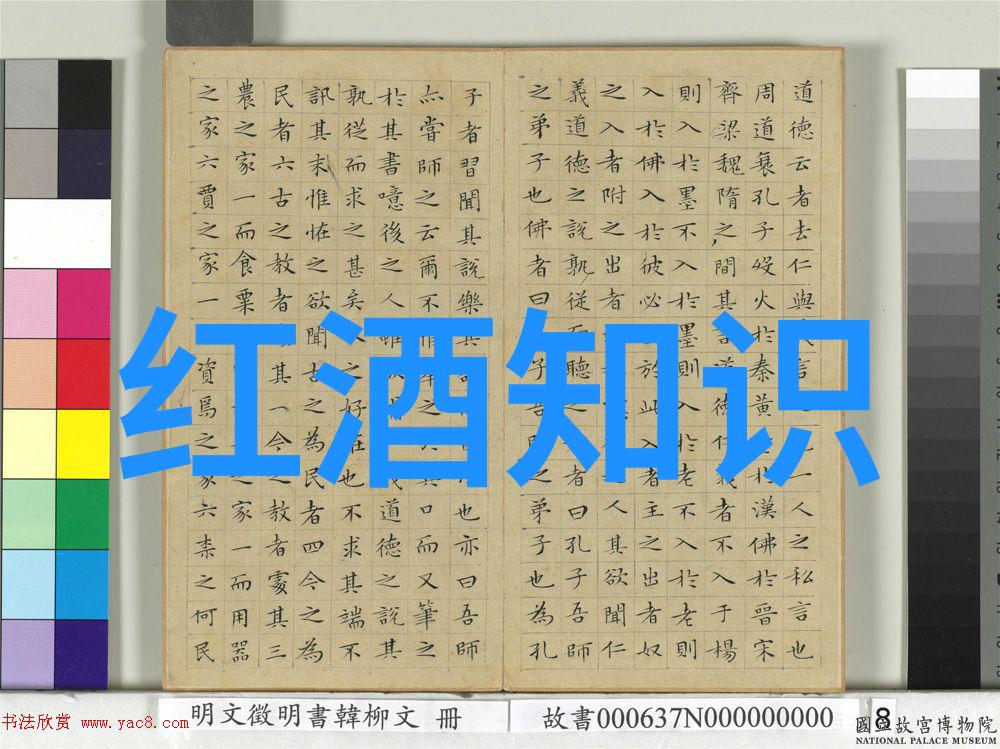 道德云者去仁與言一人之私言也
周道衰孔子歿火於秦黃於漢佛於晉宋
齊梁魏隋之間其言道德仁義者不入于楊
則入於墨不入於墨則入於老不入於老則
入於佛入於彼必於此入者主之出者奴
之入者附之出者人其欲聞仁
義道德之說孰從而聽之者曰孔子吾師
之弟子也佛者曰子吾師之弟子也為孔
子者習聞其說樂其也亦曰吾師
亦嘗師之云爾不惟舉之於其口而又筆之
於其書噫後之人雖欲聞義道德之說其
孰從而求之甚矣人之好怪也不求其端不
訊其末惟恠之欲聞古之為民者四今之為
民者六古之教者其一今之教者處其三
農之家一而食粟之家一而用器
之家六賈之家一資焉之家六柰之何民
红酒知识
明文徵明書韓柳文 冊
故書000637N000000000
8
书法欣赏 www.yac8.com
國立故宮博物院
NATIONAL PALACE MUSEUM